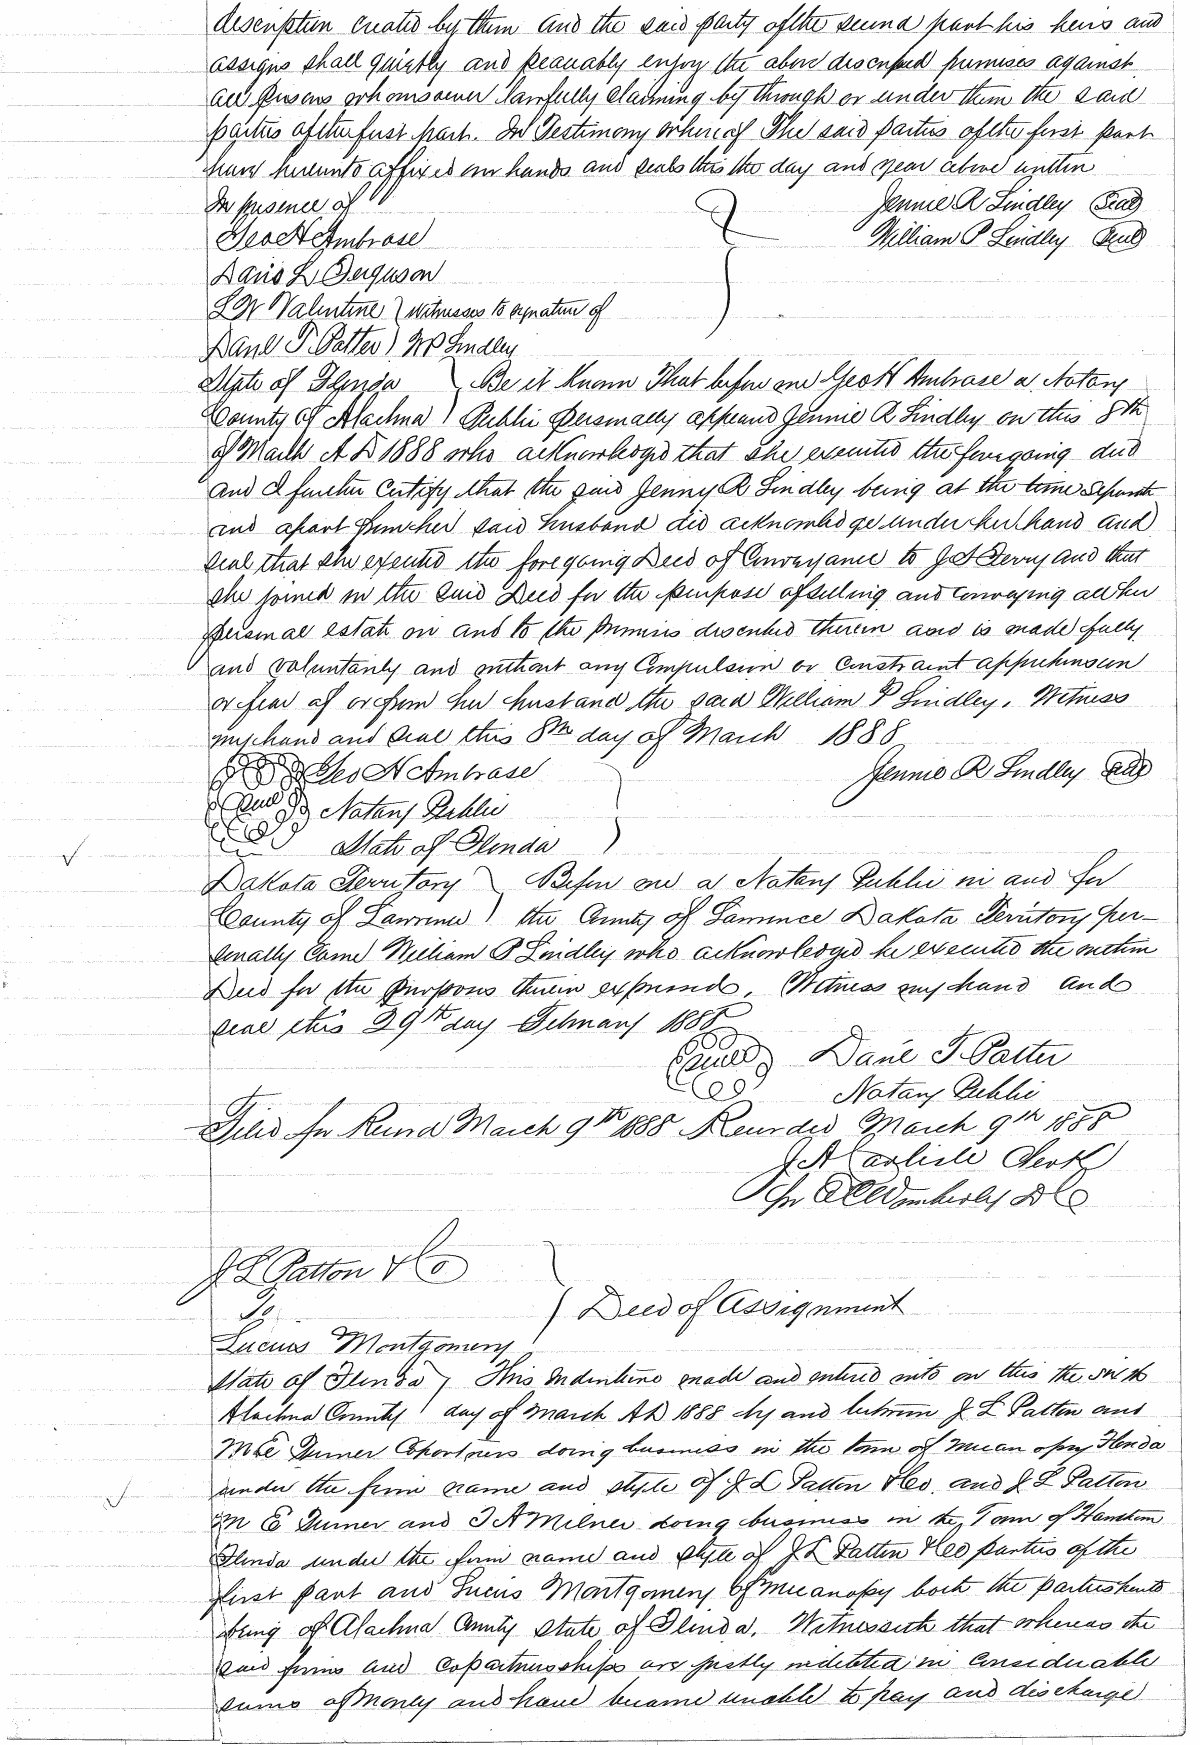 description created by them and the said party of the second part his heirs and
assigns shall quietly and peaceably enjoy the above discribed premises against
all persons whomsoever lawfully claiming by through or under them the said
parties of the first part. In Testimony whereof The said parties of the first part
have hereunto affixed our hands and seals this the day and year above written
In presence of Jennie R Lindley Seal
Geo H Ambrose William P Lindley Seal
Davis L Ferguson
S W Valentine } witnesses to signature of
Danl T. Potter } W P Lindley
State of Florida } Be it Known That before me Geo H Ambrose a Notary
County of Alachua } Public personally appeared Jennie R Lindley on this 8th
of March A D 1888 who acknowledged that she executed the foregoing deed
and I further Certify that the said Jenny R Lindley being at the time Separate
and apart from her said husband did acknowledge under her hand and
seal that she executed the foregoing Deed of Conveyance to J A Perry and that
she joined in the said Deed for the purpose of selling and conveying all her
personal estate on and to the premises described therein and is made fully
and voluntarily and without any Compulsion or Constraint apprehension
or fear of or from her husband the said William P Lindley. Witness
my hand and seal this 8th day of March 1888
Geo H Ambrose Jennie R Lindley Seal
Seal Notary Public
State of Florida
Dakota Territory } Before me a Notary Public in and for
County of Lawrence } the County of Lawrence Dakota Territory per-
sonally Came William P Lindley who acknowledged he executed the within
Deed for the purposes therein expressed. Witness my hand and
seal this 29th day February 1888
Seal Danl T. Potter
Notary Public
Filed for Record March 9th 1888 Recorded March 9th 1888
J A Carlisle Clerk
Per Wimberly D C
J L Patton & Co
To } Deed of Assignment
Lucius Montgomery
State of Florida } This Indenture made and entered into on this the sixth
Alachua County } day of March A D 1888 by and between J L Patton and
M E Turner Copartners doing business in the town of Micanopy Florida
under the firm name and style of J L Patton & Co. and J L Patton
M E Turner and J A Milner doing business in the Town of Hawthorn
Florida under the firm name and style of J L Patton & Co parties of the
first part and Lucius Montgomery of Micanopy both the parties hereto
being of Alachua County State of Florida. Witnesseth that whereas the
said firms and Copartnerships are justly indebted in Considerable
sums of Money and have became unable to pay and discharge